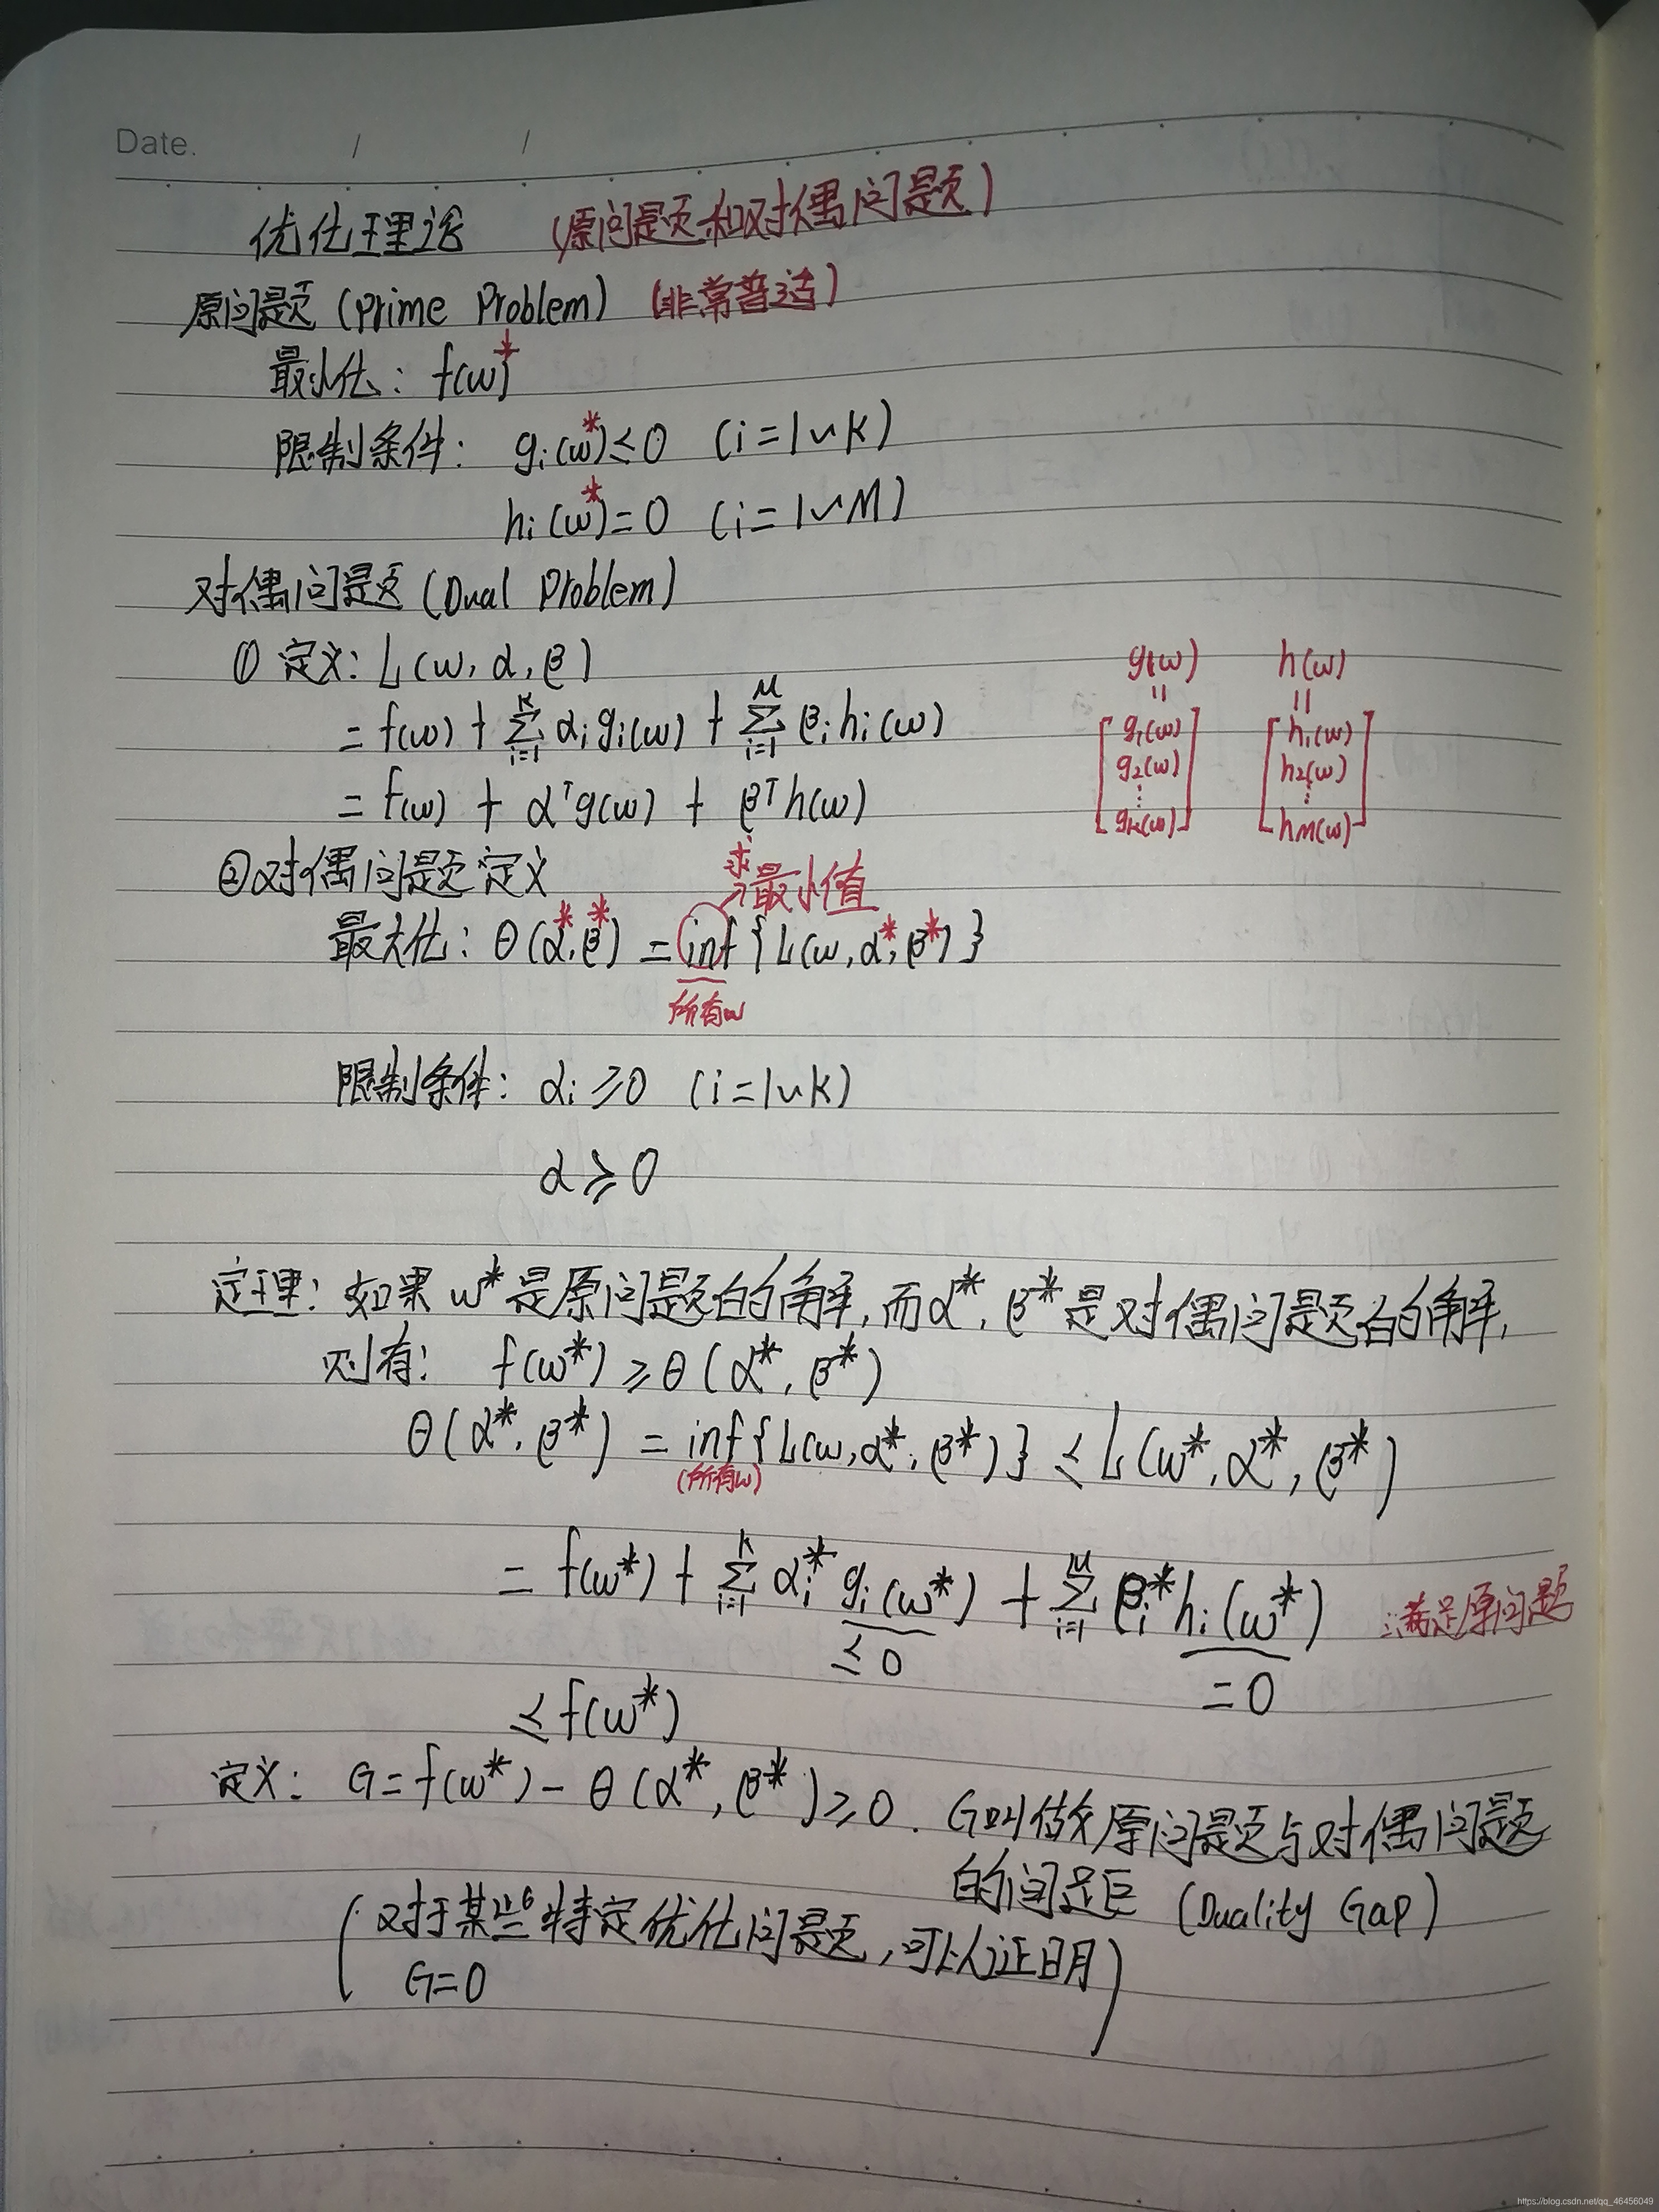 Date. / /
优化理论 (原问题和对偶问题)
原问题 (Prime Problem) (非常普适)
最小化: f(ω*)
限制条件: gᵢ(ω*)≤0 (i=1~K)
hᵢ(ω*)=0 (i=1~M)
对偶问题 (Dual Problem)
① 定义: L(ω, α, β)
= f(ω) + ∑ᵢ₌₁ᴷ αᵢgᵢ(ω) + ∑ᵢ₌₁ᴹ βᵢhᵢ(ω)
= f(ω) + αᵀg(ω) + βᵀh(ω)
g(ω) = [g₁(ω) g₂(ω) ⋮ gₖ(ω)]
h(ω) = [h₁(ω) h₂(ω) ⋮ hM(ω)]
②对偶问题定义
求最小值
最大化: θ(α*, β*) = inf{L(ω, α*, β*)}
所有ω
限制条件: αᵢ ≥0 (i=1~K)
α≥0
定理: 如果 ω* 是原问题的解, 而α*, β* 是对偶问题的解,
则有: f(ω*) ≥ θ(α*, β*)
θ(α*, β*) = inf{L(ω, α*, β*)} ≤ L(ω*, α*, β*)
(所有ω)
= f(ω*) + ∑ᵢ₌₁ᴷ αᵢ* gᵢ(ω*) + ∑ᵢ₌₁ᴹ βᵢ* hᵢ(ω*) ∵满足原问题
≤0 =0
≤ f(ω*)
定义: G=f(ω*) - θ(α*, β*) ≥0. G叫做原问题与对偶问题
的间距 (Duality Gap)
(对于某些特定优化问题, 可以证明
G=0)
https://blog.csdn.net/qq_46456049